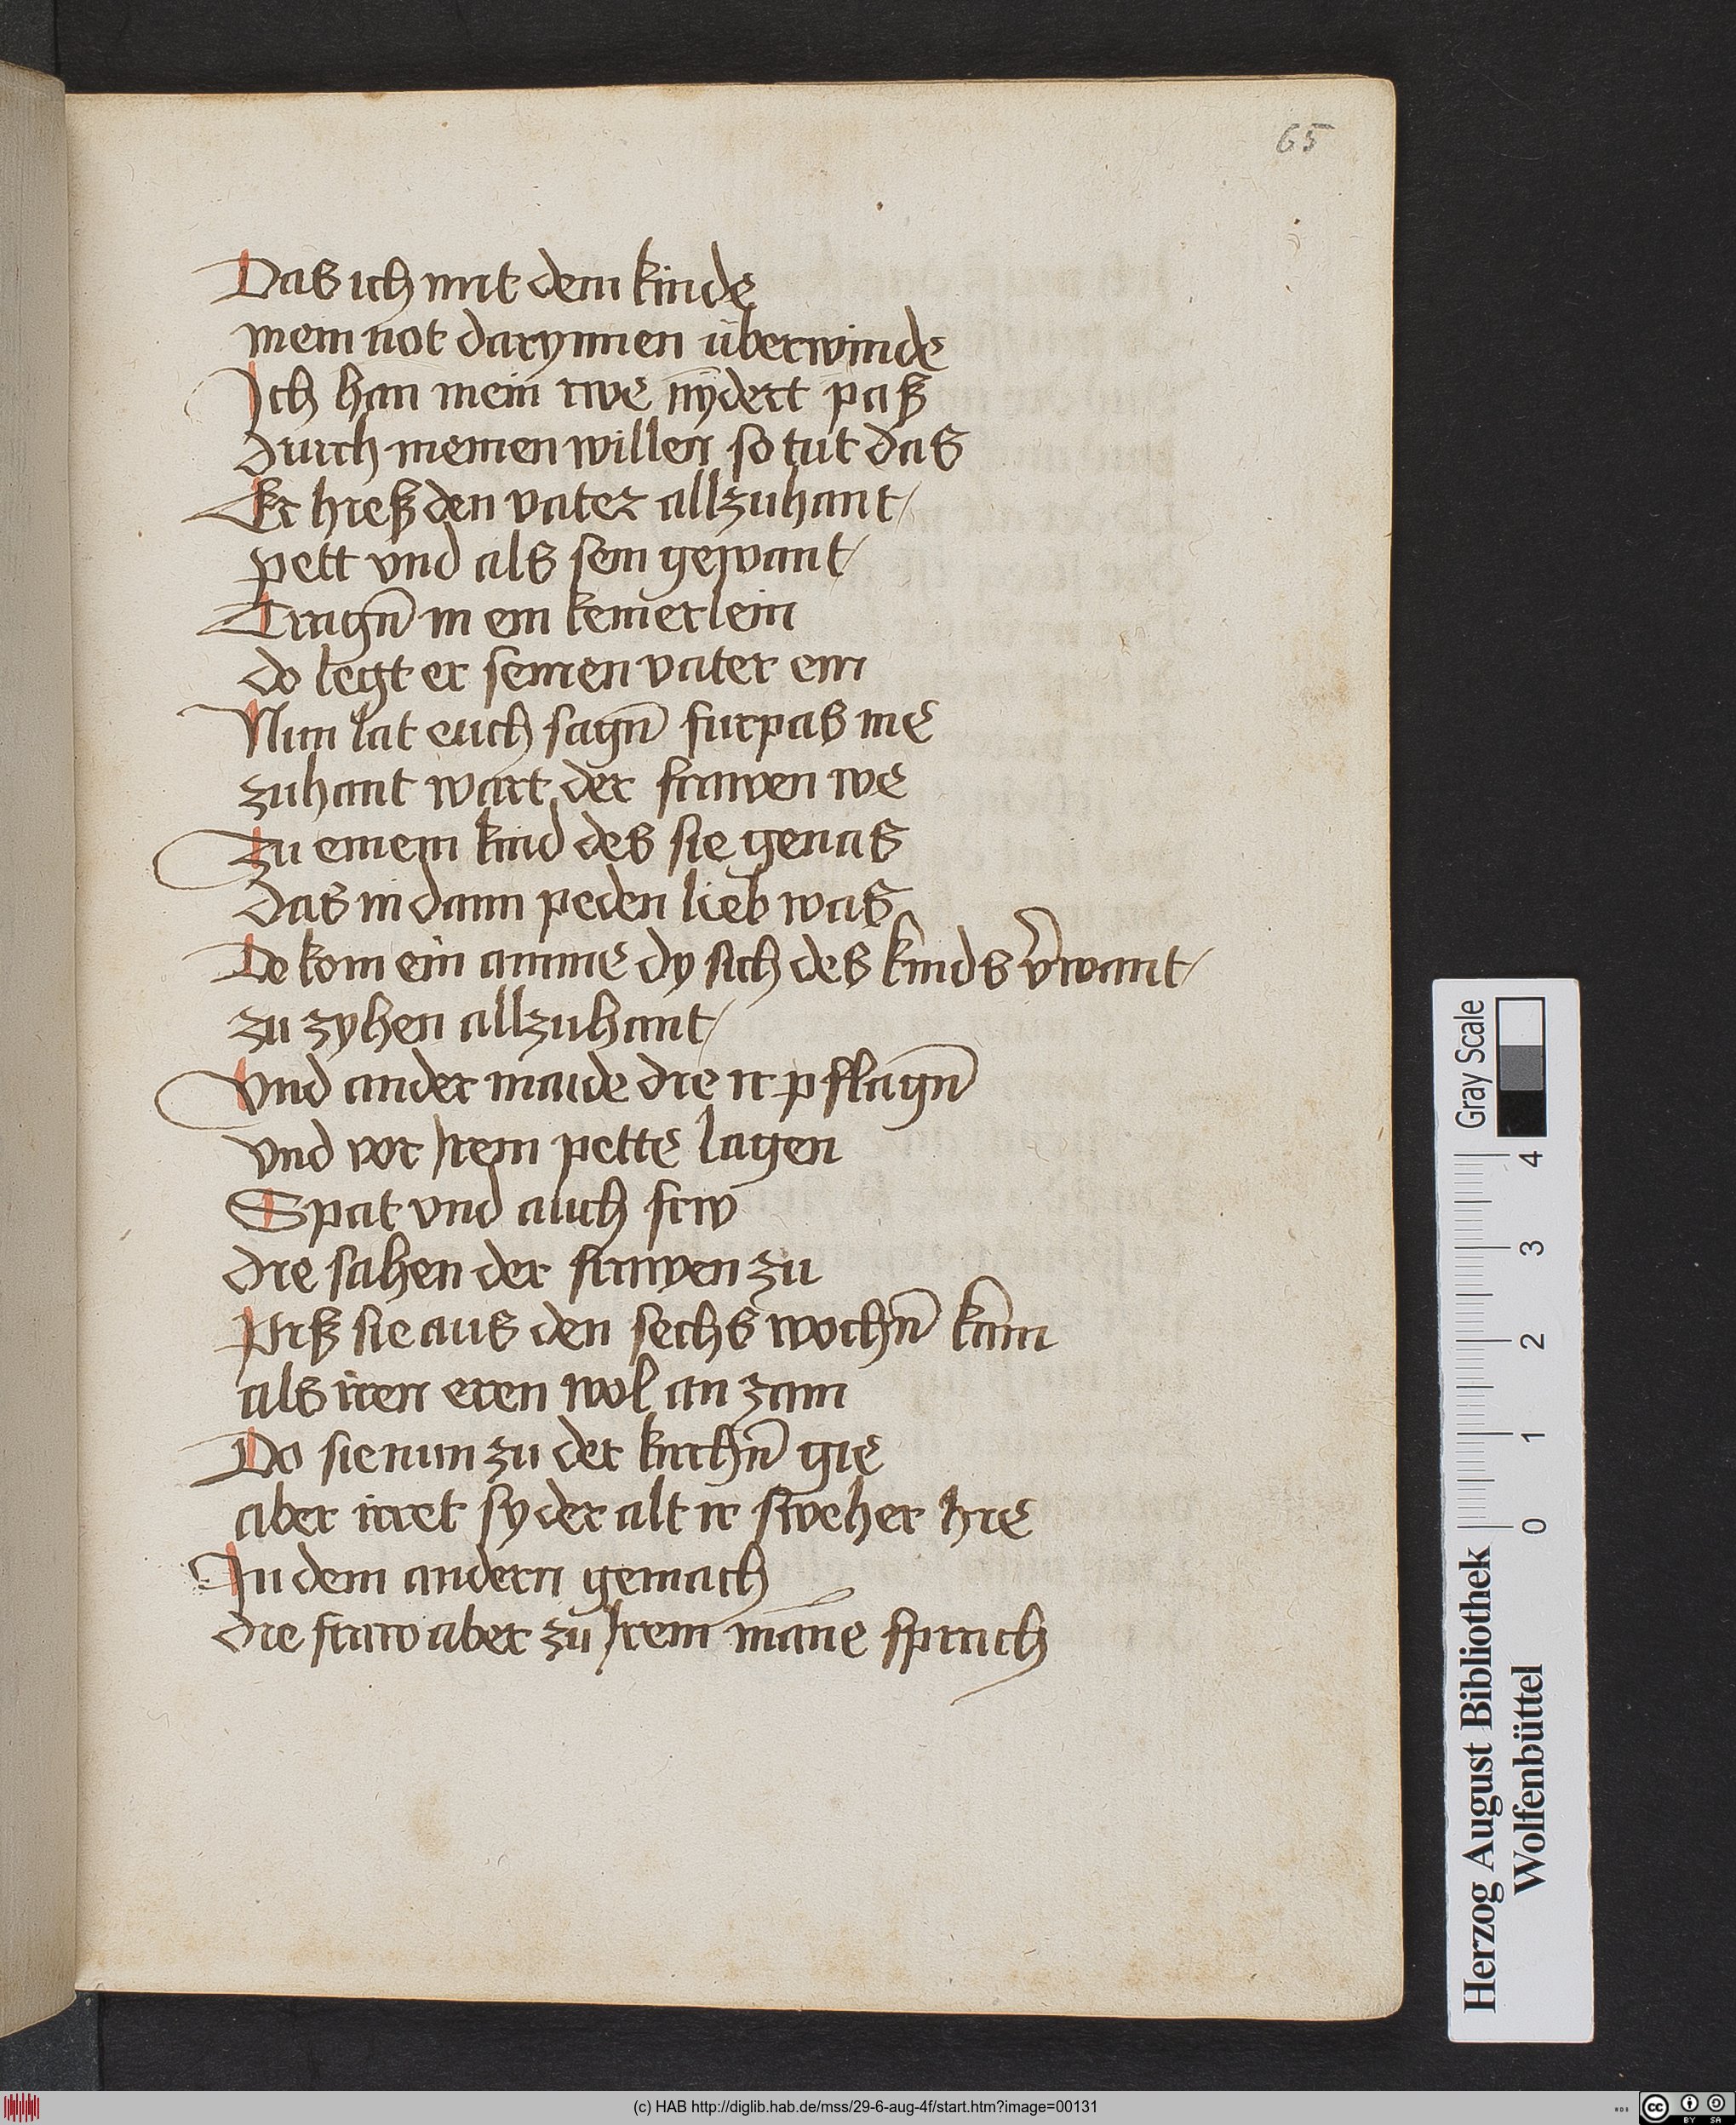 65
Das ich mit dem kinde
mein not darynnen uberwinde
Ich han mein rwe nÿdert paß
durch meinen willen so tut das
Er hieß den vater allzuhant
pett vnd als sein gewant
Tragn̄ in ein kemerlein
do legt er seinen vater ein
Nun lat euch sagn̄ furpas me
zuhant wart der frawen we
Zu einem kind des sie genas
das in dann peden lieb was
Do kom ein amme dy sich des kinds v̄want
zu zyhen allzuhant
Vnd ander maide die ir pflagn̄
vnd vor irem pette lagen
Spat vnd auch frw
die sahen der frawen zu
Piß sie aus den sechs wochn̄ kam
als iren eren wol an zam
Do sie nun zu der kirchn̄ gie
aber irret sy der alt ir sweher hie
In dem andern gemach
die fraw aber zu irem man̄e sprach
Gray Scale
4
3
2
1
0
Herzog August Bibliothek
Wolfenbüttel
(c) HAB http://diglib.hab.de/mss/29-6-aug-4f/start.htm?image=00131
BY SA